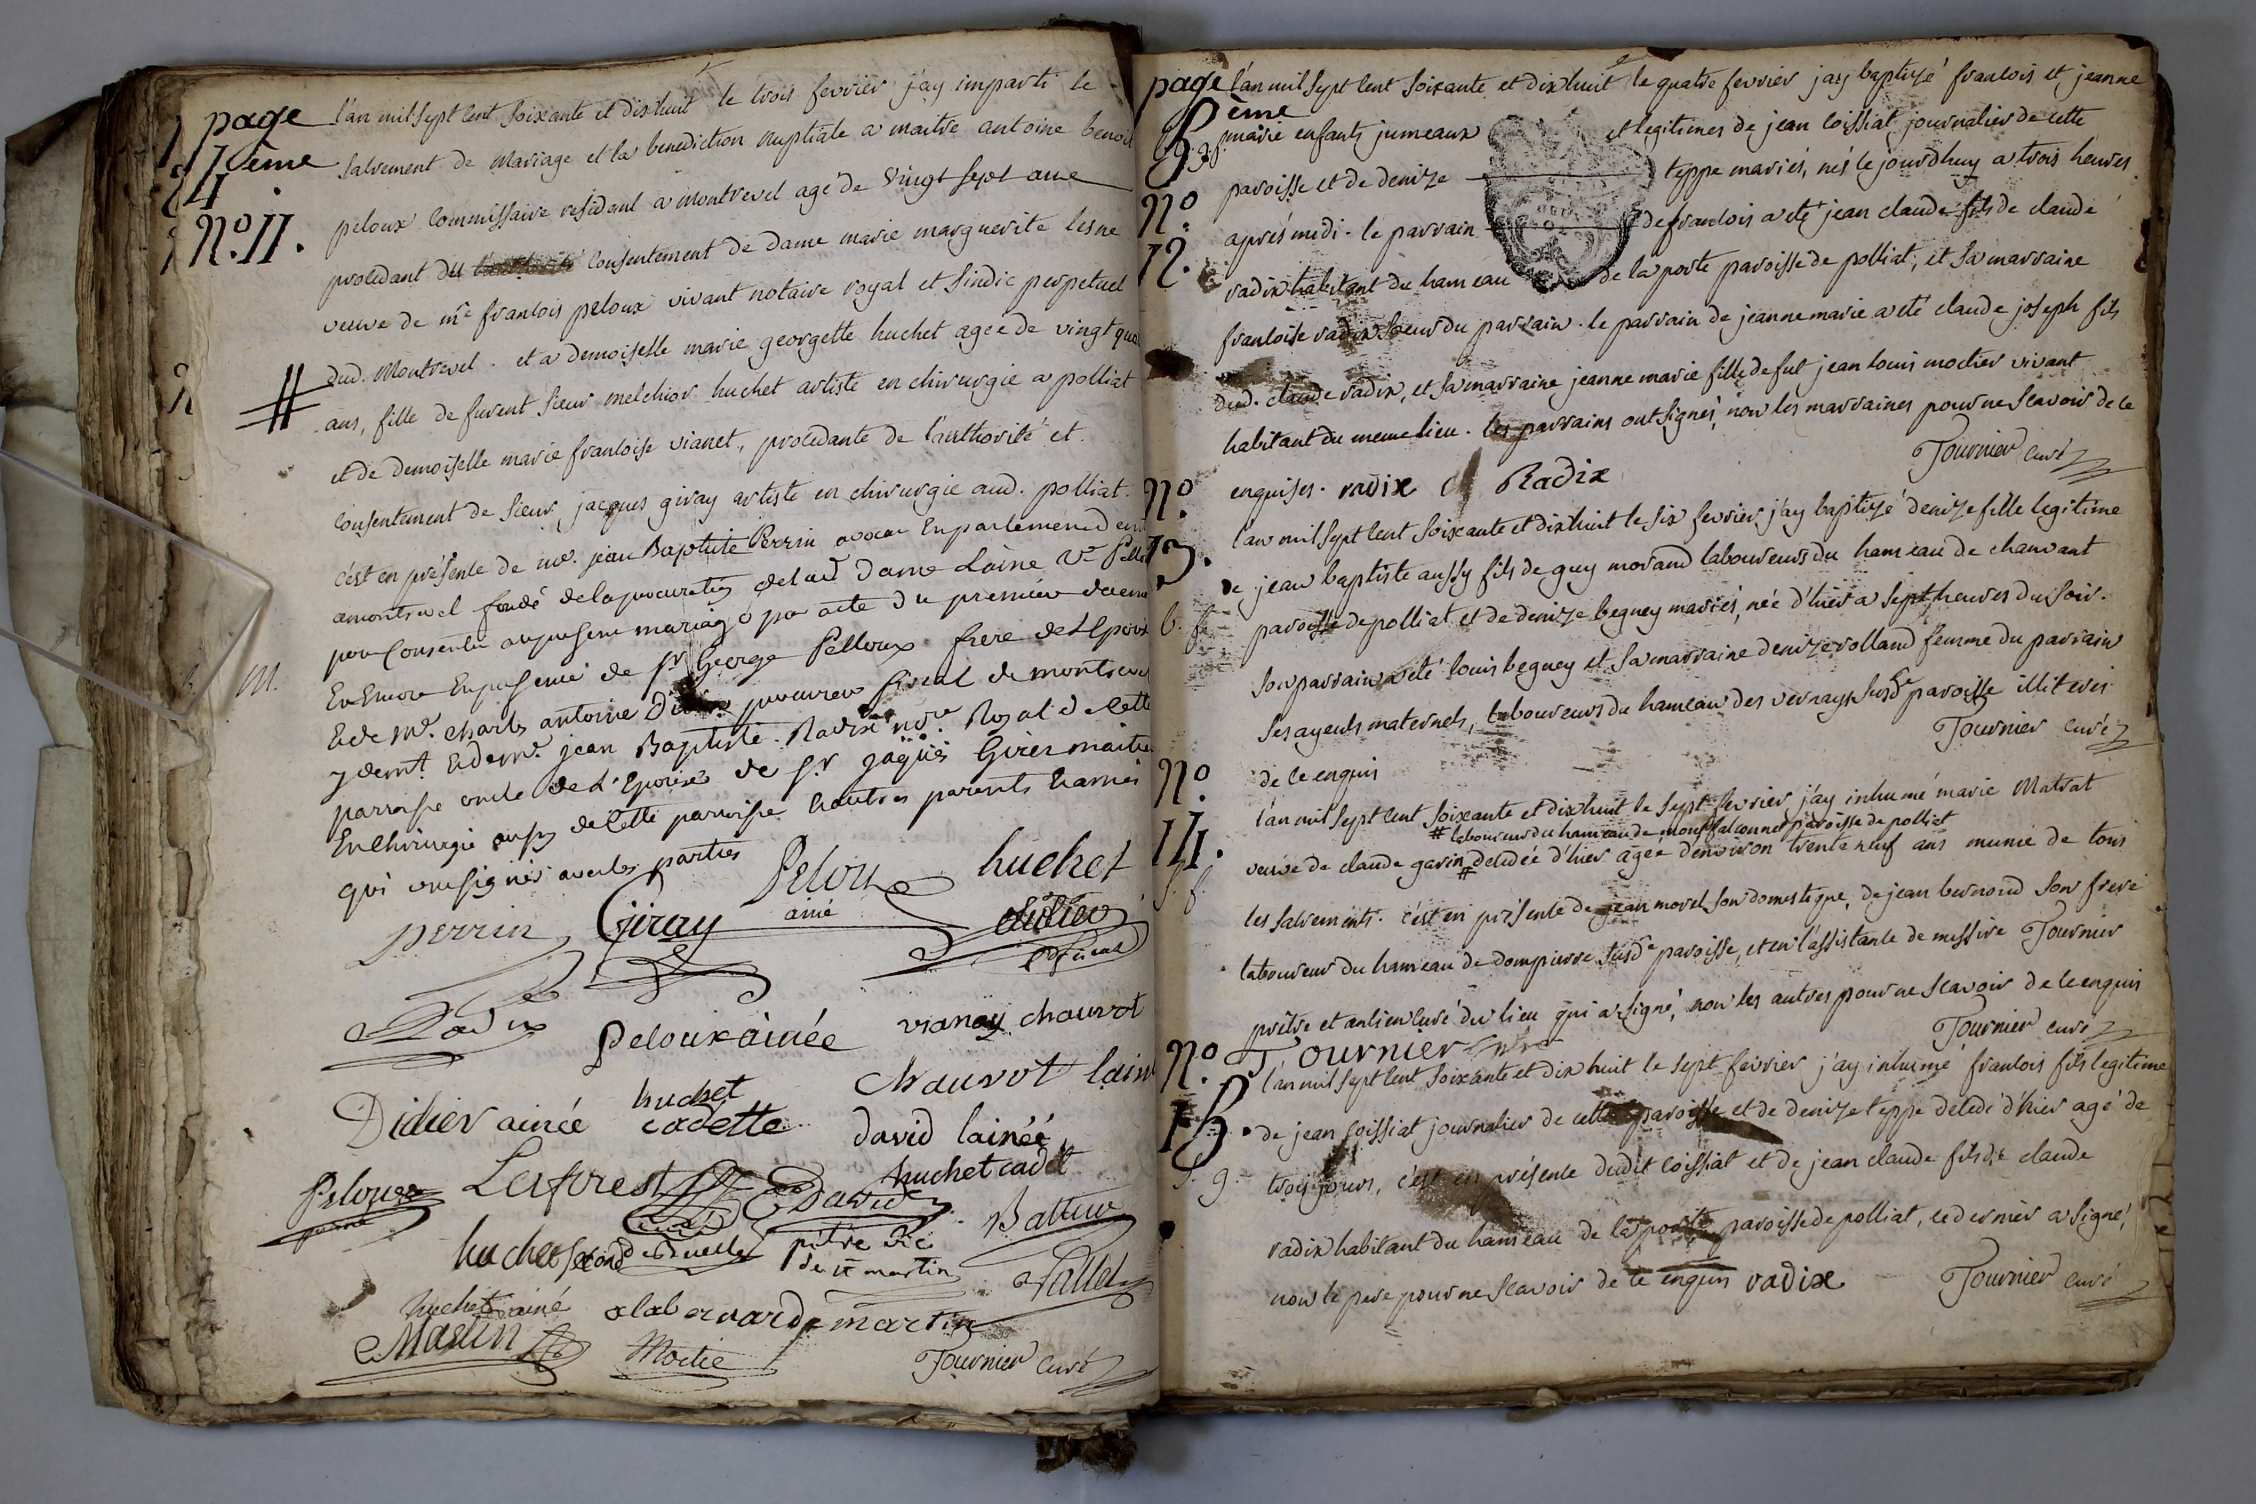 page 4ème
N.º 11.
l'an mil sept cent soixante et dix huit le trois fevrier j'ay imparti le
sacrement de mariage et la benediction nuptiale a maitre antoine benoit
peloux commissaire resident a montrevel agé de vingt sept ans
procedant du consentement de dame marie marguerite lesne
veuve de me francois peloux vivant notaire royal et sindic perpetuel
dud. montrevel. et a demoiselle marie georgette huchet agee de vingt qua
ans, fille de furent sieur melchior huchet artiste en chirurgie a polliat
et de demoiselle marie francoise vianet, procedante de l'authorité et
consentement de sieur jacques giray artiste en chirurgie aud. polliat.
c'est en présence de me. jean Baptiste Perrin avocat En parlement dem
amontrevel fondé de la procuration de lad dame Laine Ve Pello
pour Consentir au present mariage par acte du premier
Et Encore En presence de sr George Pelloux frere de L'Epoux
Et de Me. charles antoine procureur fiscal de montrevel
y demt. Et de Mr. jean Baptiste Radix nore. Royal de Cette
parroisse oncle de L'Epouse de sr jaques Girer maitre
En Chirurgie aussy de Cette parroisse Et autres parents Et amis
qui ont signés avec les parties
Peloux ainé huchet
perrin Giray didier
Radix pelouxainée vianay chauvot
chauvot lain
Didier ainée huchet cadette david lainée
huchet cadet
Peloux Laforest David Battur
huchet second pitre Ric de st martin
huchet ainé alabernarde martin
Martin Moctie Tournier curé
page 5ème
N.º 12.
l'an mil sept cent soixante et dix huit le quatre fevrier j'ay baptizé francois et jeanne
marie enfants jumeaux et legitimes de jean coissiat journalier de cette
paroisse et de denize teppe mariés, nés le jourdhuy a trois heures
aprés midi. le parrain de francois a eté jean claude fils de claude
radix habitant du hameau de la poste paroisse de polliat, et sa marraine
francoise radix soeur du parrain. le parrain de jeanne marie a eté claude joseph fils
dud. claude radix, et sa marraine jeanne marie fille de fut jean louis moctier vivant
habitant du meme lieu. les parrains ont signés, non les marraines pour ne scavoir de ce
enquises. radix Radix Tournier curé
N.º 13.
l'an mil sept cent soixante et dix huit le six fevrier j'ay baptizé denize fille legitime
de jean baptiste aussy fils de guy morand laboureurs du hameau de chanvant
paroisse de polliat et de denize beguey mariés, née d'hier a sept heures du soir.
son parrain a eté louis beguey et sa marraine denize rolland femme du parrain
ses ayeuls maternels, laboureurs du hameau des vernays susde paroisse illiteres
de ce enquis Tournier curé
N.º 14.
l'an mil sept cent soixante et dix huit le sept fevrier j'ay inhumé marie Matrat
# laboureur du hameau de montfalconnet paroisse de polliat
veuve de claude gavin # decedée d'hier agée d'environ trente neuf ans munie de tous
les sacrements. c'est en présence de jean morel son domestique, de jean bernard son frere
laboureur du hameau de dompierre susde paroisse, et en l'assistance de messire Tournier
prêtre et ancien curé du lieu qui a signé, non les autres pour ne scavoir de ce enquis
Tournier Tournier curé
N.º 15.
l'an mil sept cent soixante et dix huit le sept fevrier j'ay inhumé francois fils legitime
de jean coissiat journalier de cette paroisse et de denize teppe decedé d'hier agé de
trois jours, c'est en présence dudit coissiat et de jean claude fils de claude
radix habitant du hameau de la poste paroisse de polliat, ce dernier a signé,
non le pere pour ne scavoir de ce enquis radix Tournier curé